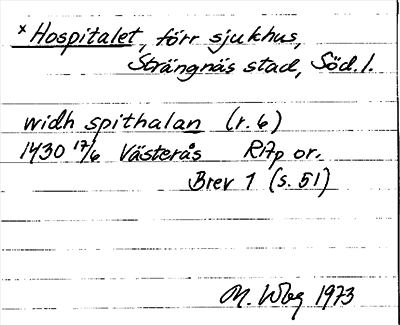 × Hospitalet, förr sjukhus,
Strängnäs stad, Söd. l.
widh spithalan (r. 6)
1430 17/6 Västerås RAp or.
Brev 1 (s. 51)
M. Wbg 1973